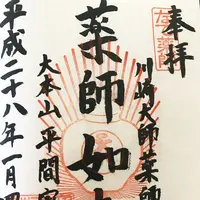 奉拝
川崎大師薬師
薬師如
大本山平間
平成二十八年一月